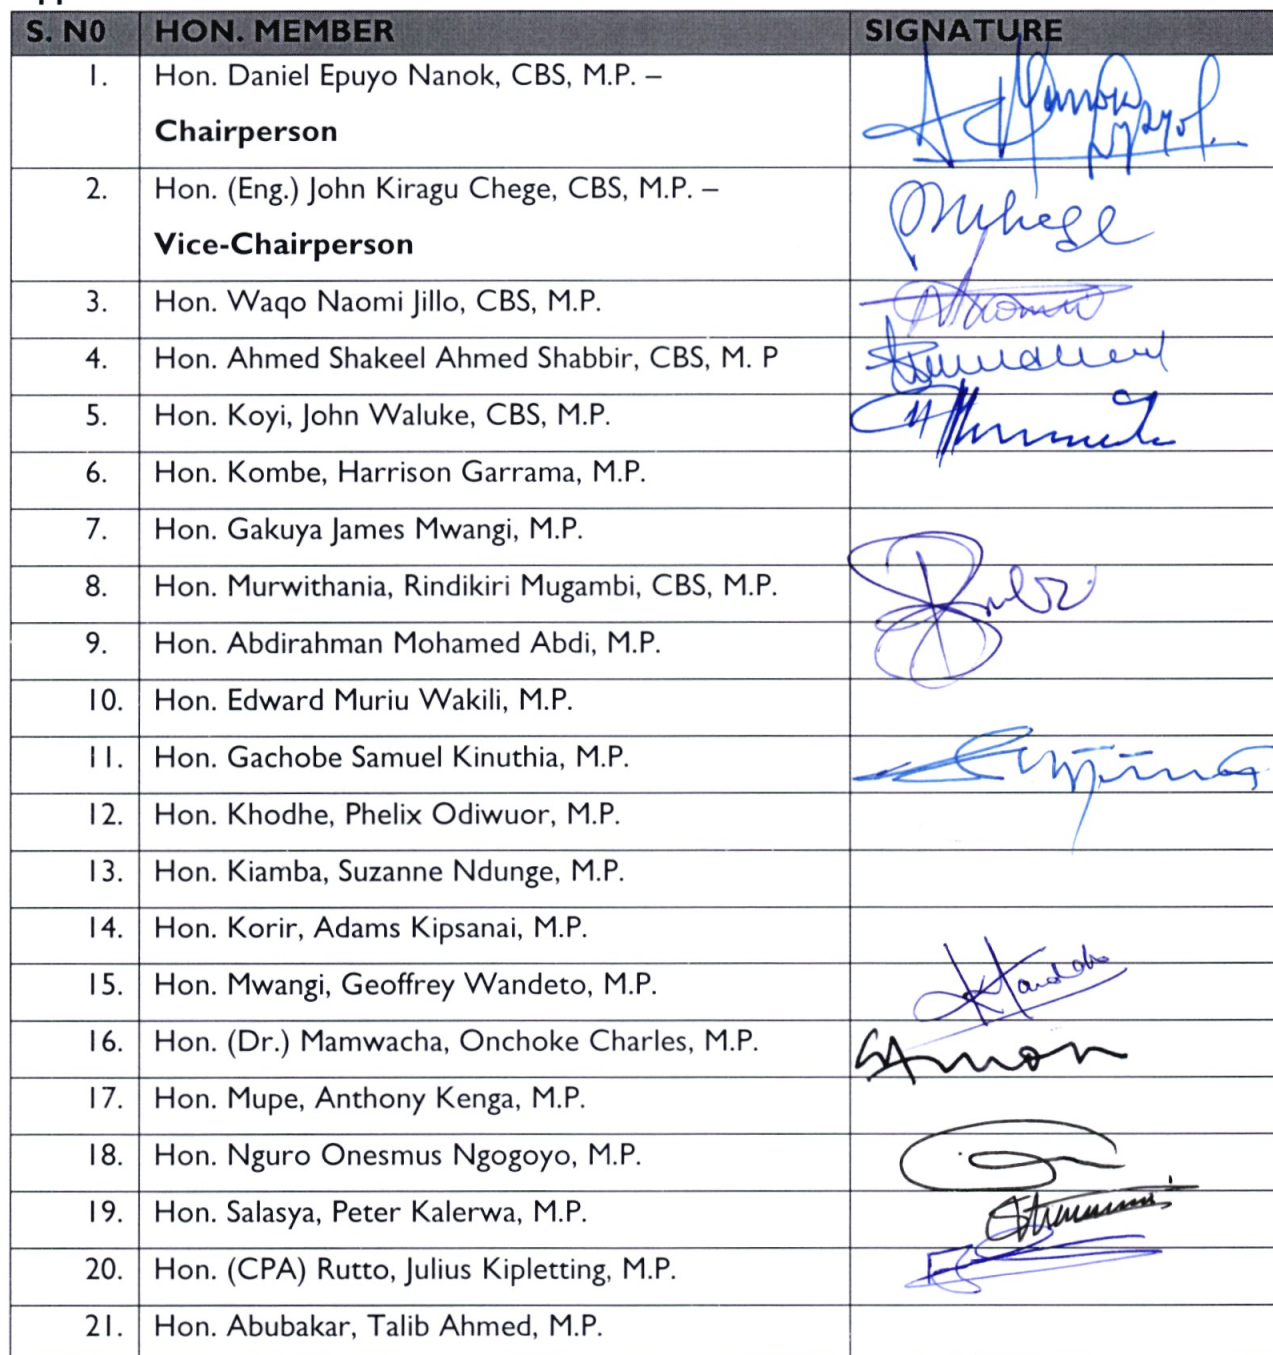 S. N0 HON. MEMBER SIGNATURE
1. Hon. Daniel Epuyo Nanok, CBS, M.P. –
Chairperson
2. Hon. (Eng.) John Kiragu Chege, CBS, M.P. –
Vice-Chairperson
3. Hon. Waqo Naomi Jillo, CBS, M.P.
4. Hon. Ahmed Shakeel Ahmed Shabbir, CBS, M. P
5. Hon. Koyi, John Waluke, CBS, M.P.
6. Hon. Kombe, Harrison Garrama, M.P.
7. Hon. Gakuya James Mwangi, M.P.
8. Hon. Murwithania, Rindikiri Mugambi, CBS, M.P.
9. Hon. Abdirahman Mohamed Abdi, M.P.
10. Hon. Edward Muriu Wakili, M.P.
11. Hon. Gachobe Samuel Kinuthia, M.P.
12. Hon. Khodhe, Phelix Odiwuor, M.P.
13. Hon. Kiamba, Suzanne Ndunge, M.P.
14. Hon. Korir, Adams Kipsanai, M.P.
15. Hon. Mwangi, Geoffrey Wandeto, M.P.
16. Hon. (Dr.) Mamwacha, Onchoke Charles, M.P.
17. Hon. Mupe, Anthony Kenga, M.P.
18. Hon. Nguro Onesmus Ngogoyo, M.P.
19. Hon. Salasya, Peter Kalerwa, M.P.
20. Hon. (CPA) Rutto, Julius Kipletting, M.P.
21. Hon. Abubakar, Talib Ahmed, M.P.